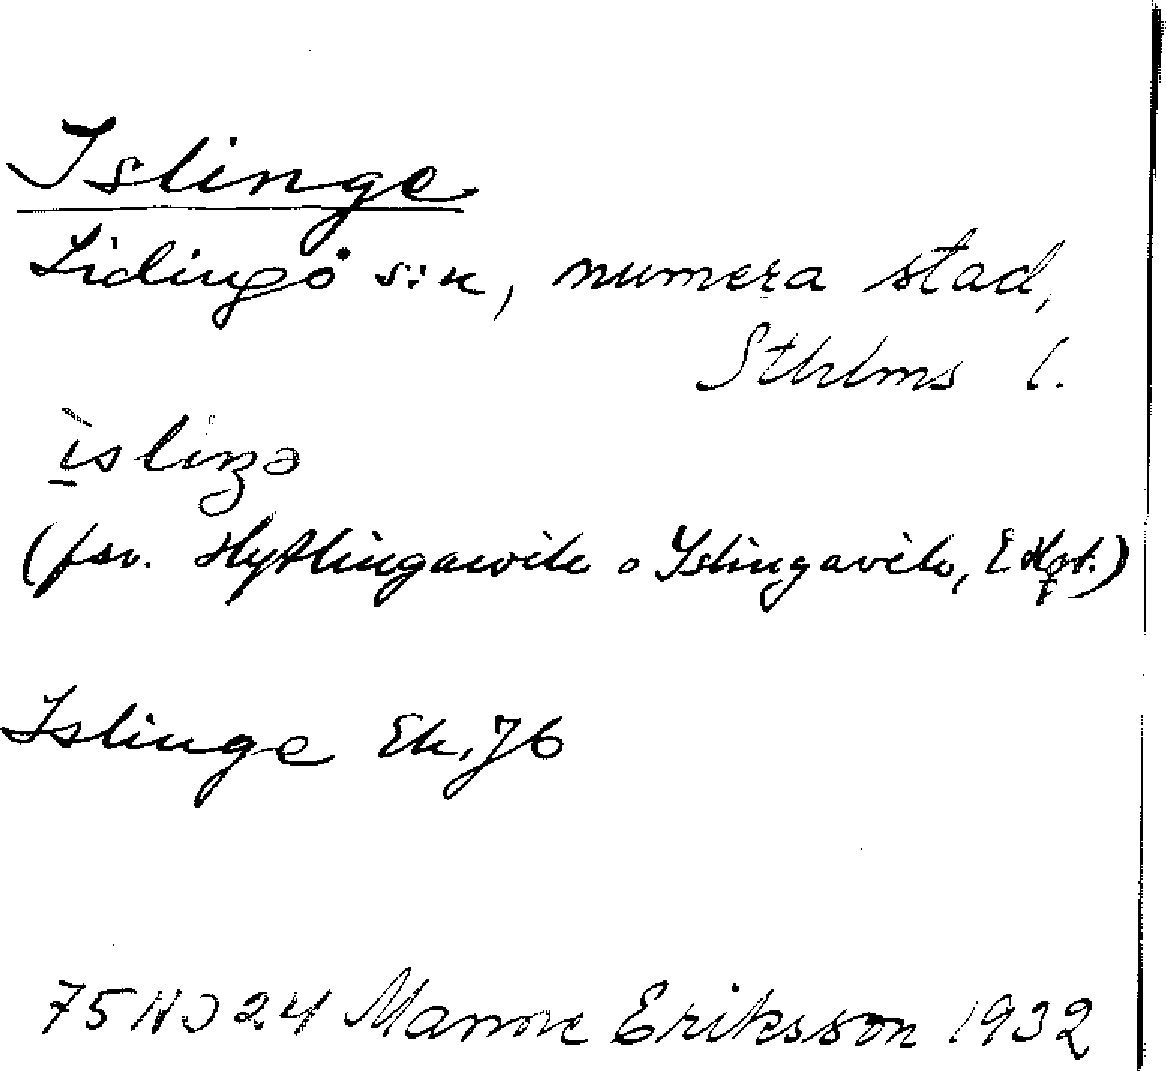 Islinge
Lidingö s:n, numera stad,
Sthlms l.
ìsliŋə
(fsv. Hytlingawik o Yslingavik, E Hqt.)
Islinge Ek. 76
75 NO 24 Manne Eriksson 1932